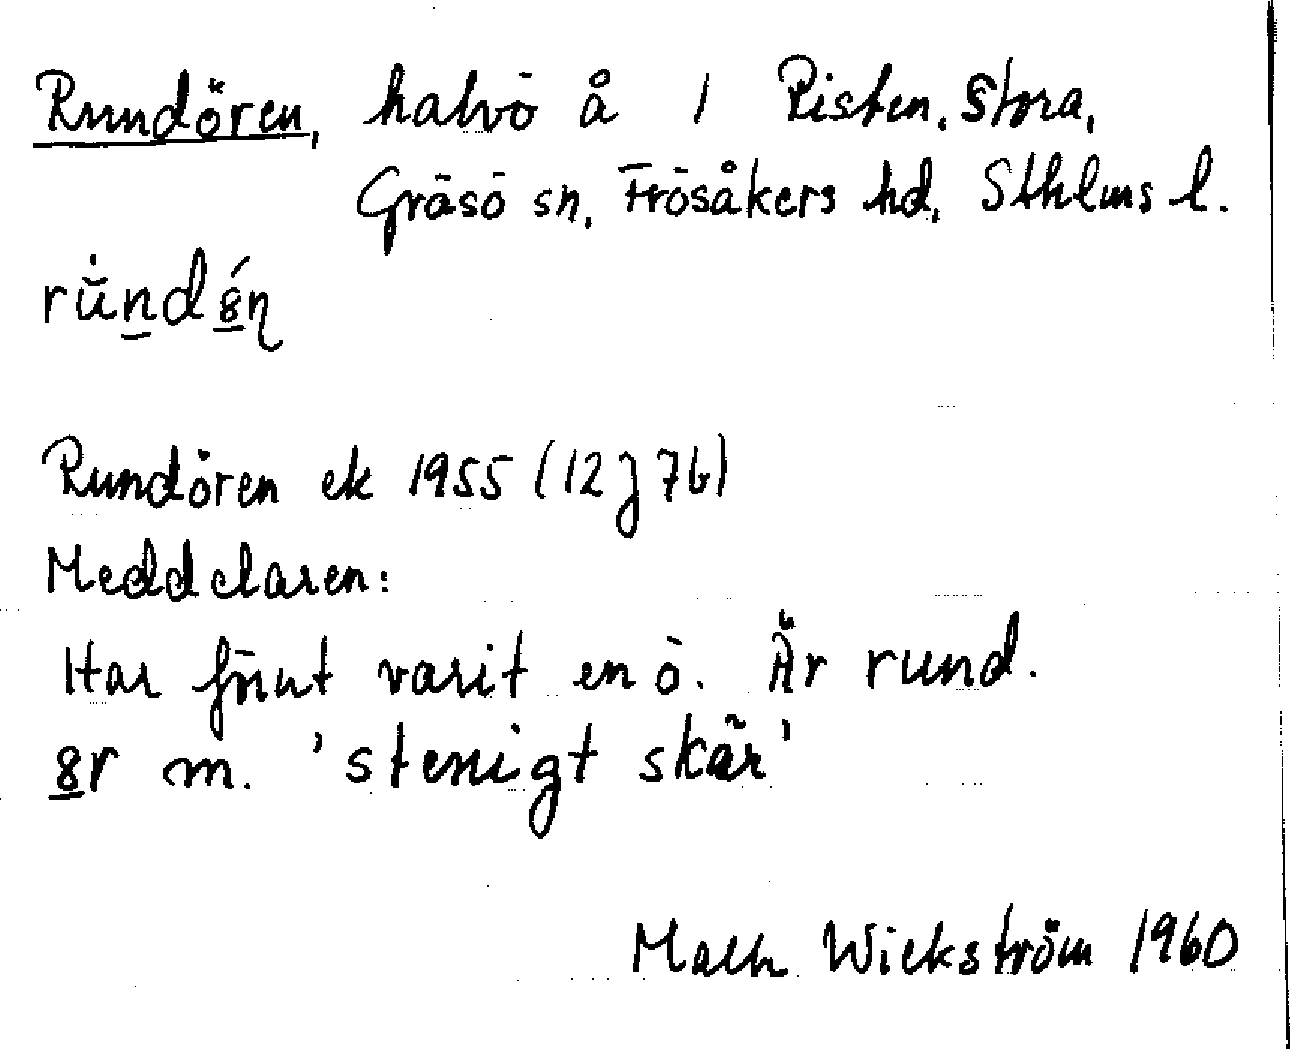 Rundören, halvö å 1 Risten, Stora,
Gräsö sn, Frösåkers hd, Sthlms l.
Rundören ek 1955 (12J7b)
Meddelaren:
Har förut varit en ö. Är rund.
m. 'stenigt skär'
Wickström 1960